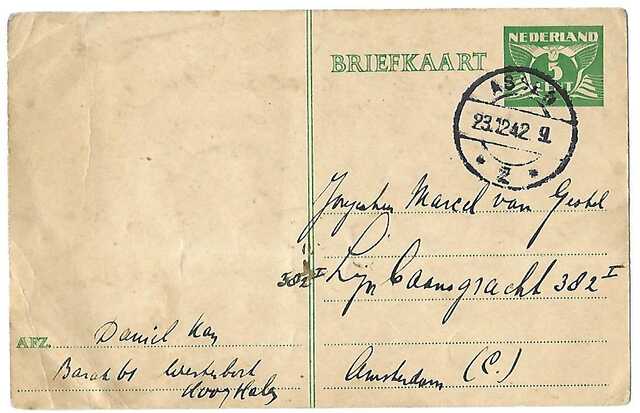 NEDERLAND
5
CENT
BRIEFKAART
ASSEN
23.12.42 9
* 2 *
Marcel van Gestel
382 I Lijnbaansgracht 382 I
Amsterdam (C.)
AFZ. Daniel Kay
Barak 61 Westerbork
Hooghalen